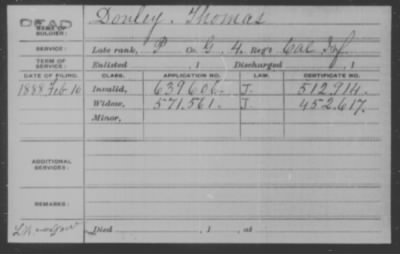 DEAD
NAME OF SOLDIER: Donley, Thomas
SERVICE: Late rank, P Co. G, 4, Reg't Cal Inf.
TERM OF SERVICE: Enlisted , 1 Discharged , 1
DATE OF FILING. CLASS. APPLICATION NO. LAW. CERTIFICATE NO.
1888 Feb 10 Invalid, 639.606. J. 512.914.
Widow, 571.561. J. 452.617.
Minor,
ADDITIONAL SERVICES:
REMARKS:
Died , 1 , at